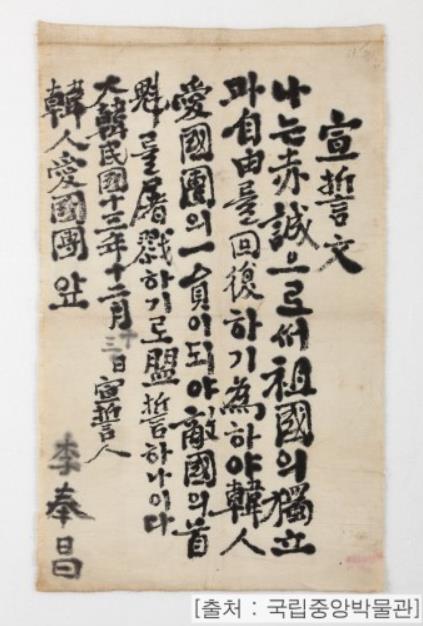 宣誓文
나는赤誠으로써祖國의獨立
과自由를回復하기爲하야韓人
愛國團의一員이되야敵國의首
魁를屠戮하기로盟誓하나이다
大韓民國十三年十二月十三日 宣誓人
韓人愛國團앞 李奉昌
[출처 : 국립중앙박물관]